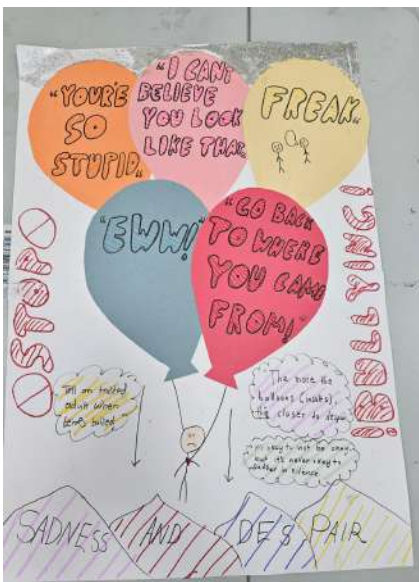 "YOU'RE
SO
STUPID"
"I CAN'T
BELIEVE
YOU LOOK
LIKE THAT"
FREAK"
"EWW!"
"GO BACK
TO WHERE
YOU CAME
FROM!"
STOP
BULLYING!
Tell an trusted
adult when
being bullied
The more the
balloons (insults)
the closer to despair
It's okay to not be okay
but it's never okay to
suffer in silence
SADNESS AND DESPAIR